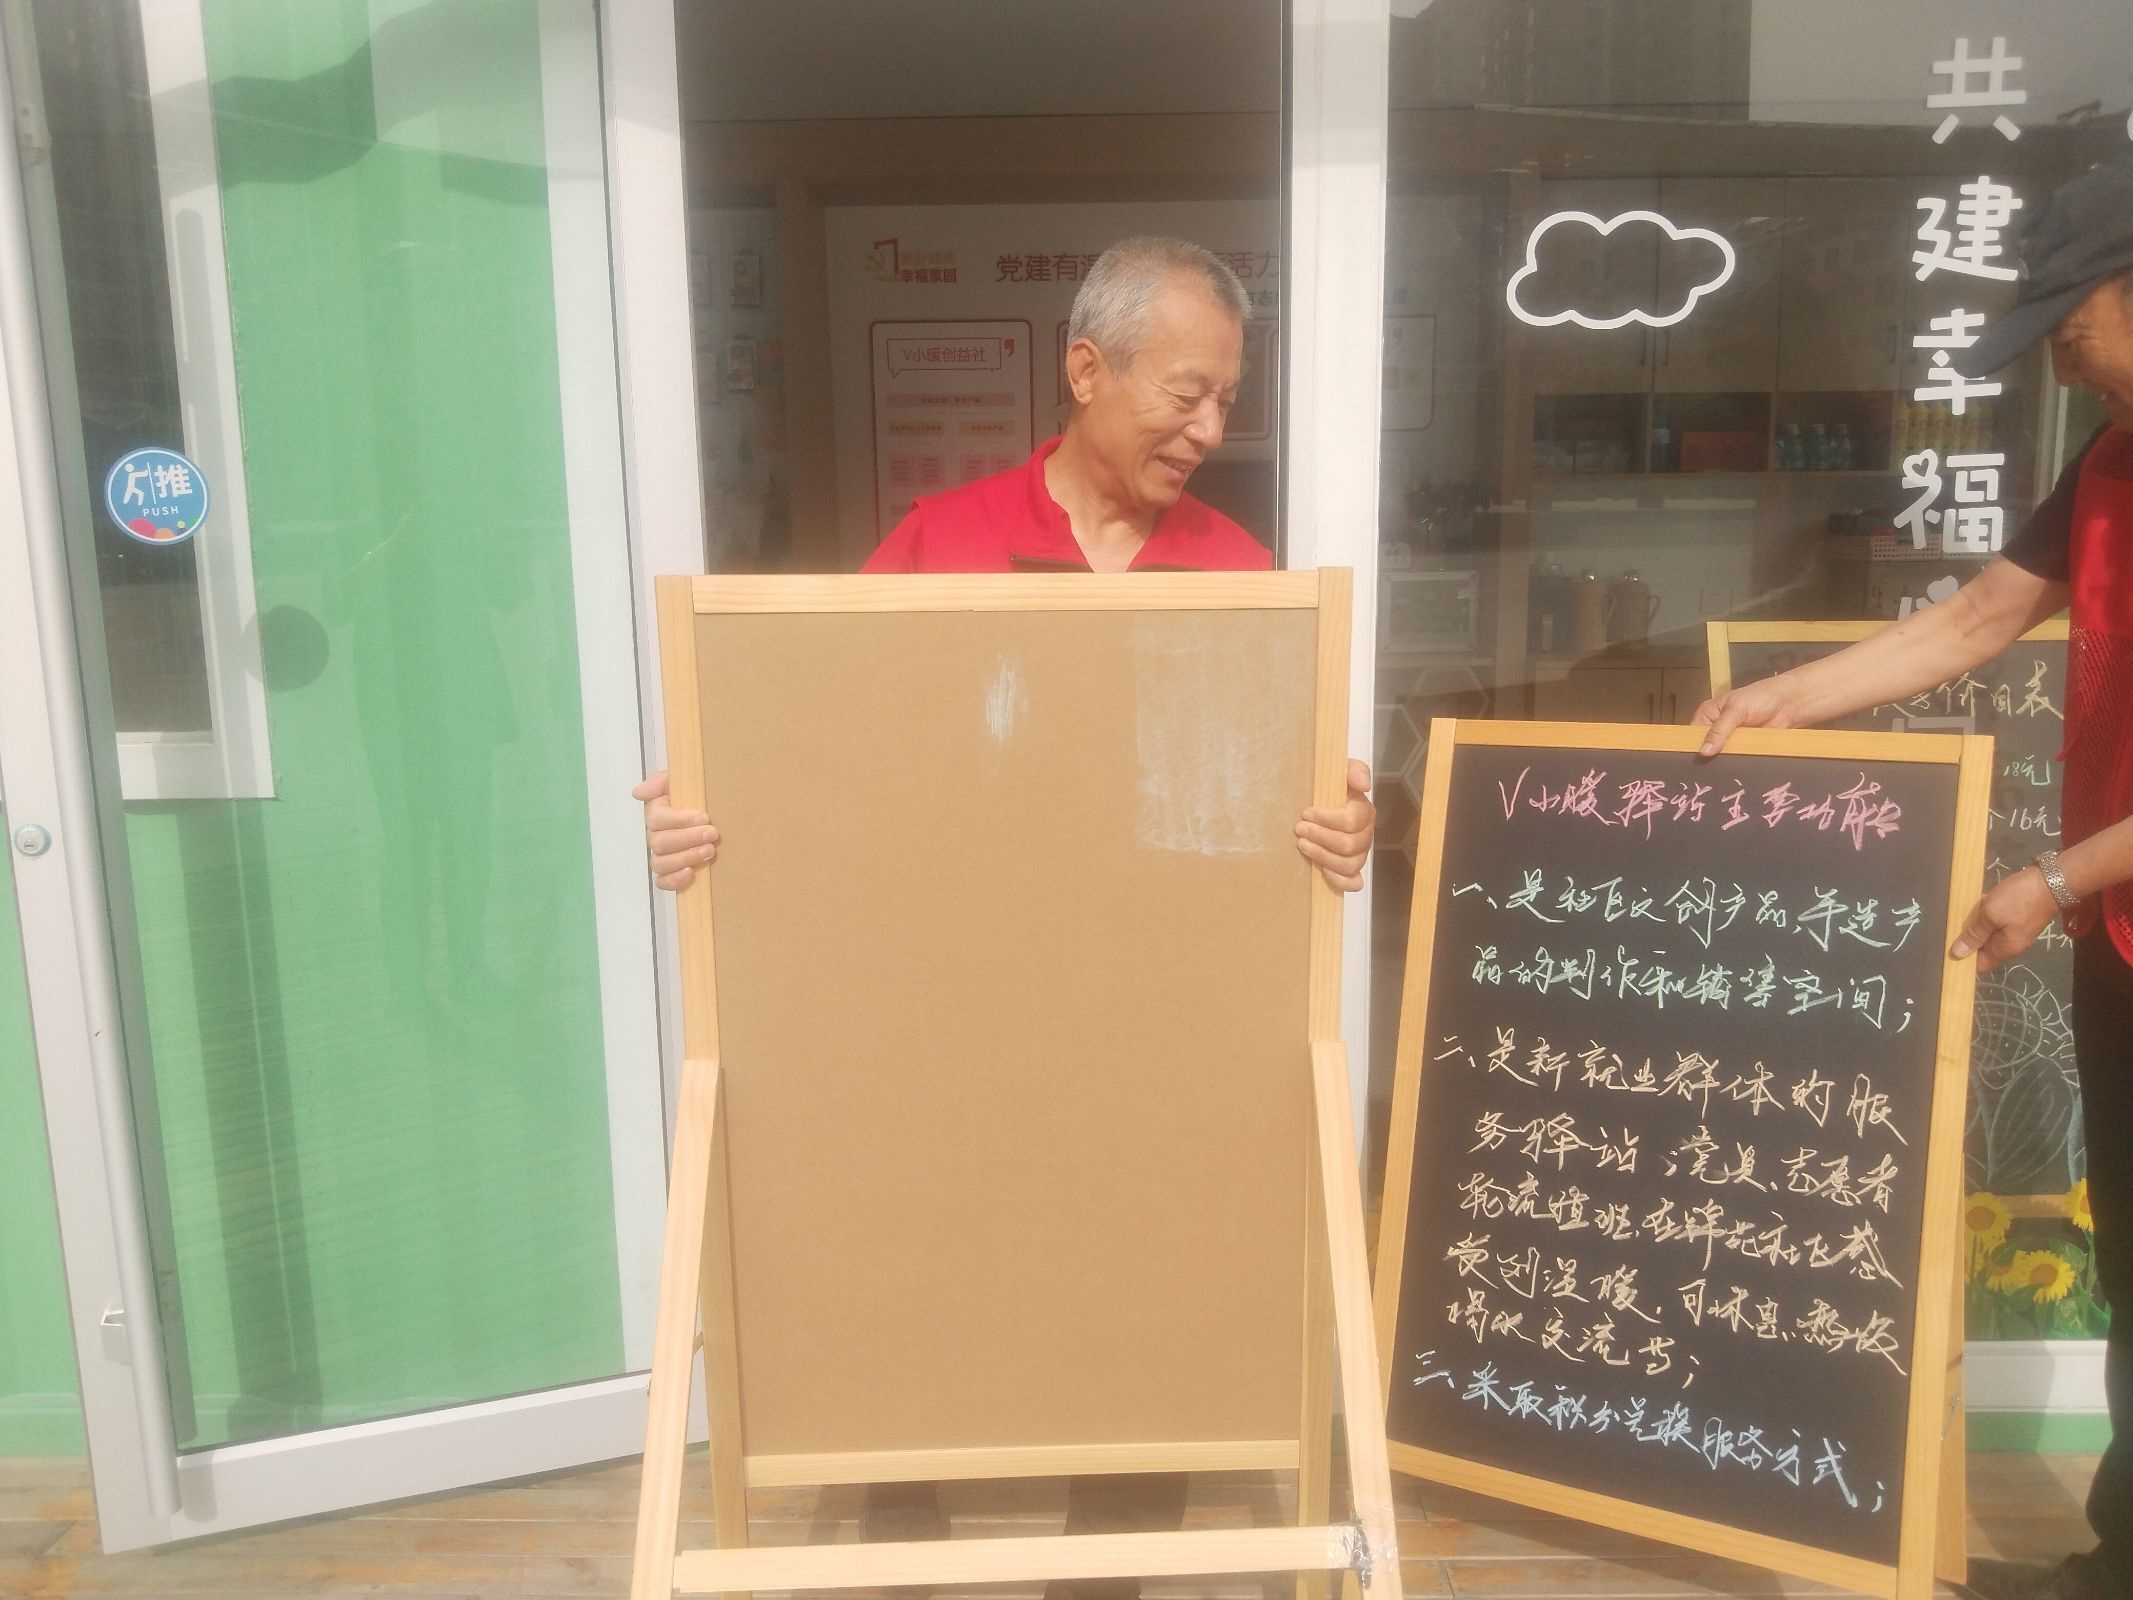 共建幸福
推
PUSH
幸福家园
党建有
活力
V小暖创益社
价目表
18元
个16元
个
V小暖驿站主要功能
一、是社区文创产品、手造产
品的制作和销售空间；
二、是新就业群体的服
务驿站；党员、志愿者
轮流值班，在鲜花社区感
受到温暖，可休息、热饭
喝水交流等；
三、采取积分兑换服务方式；